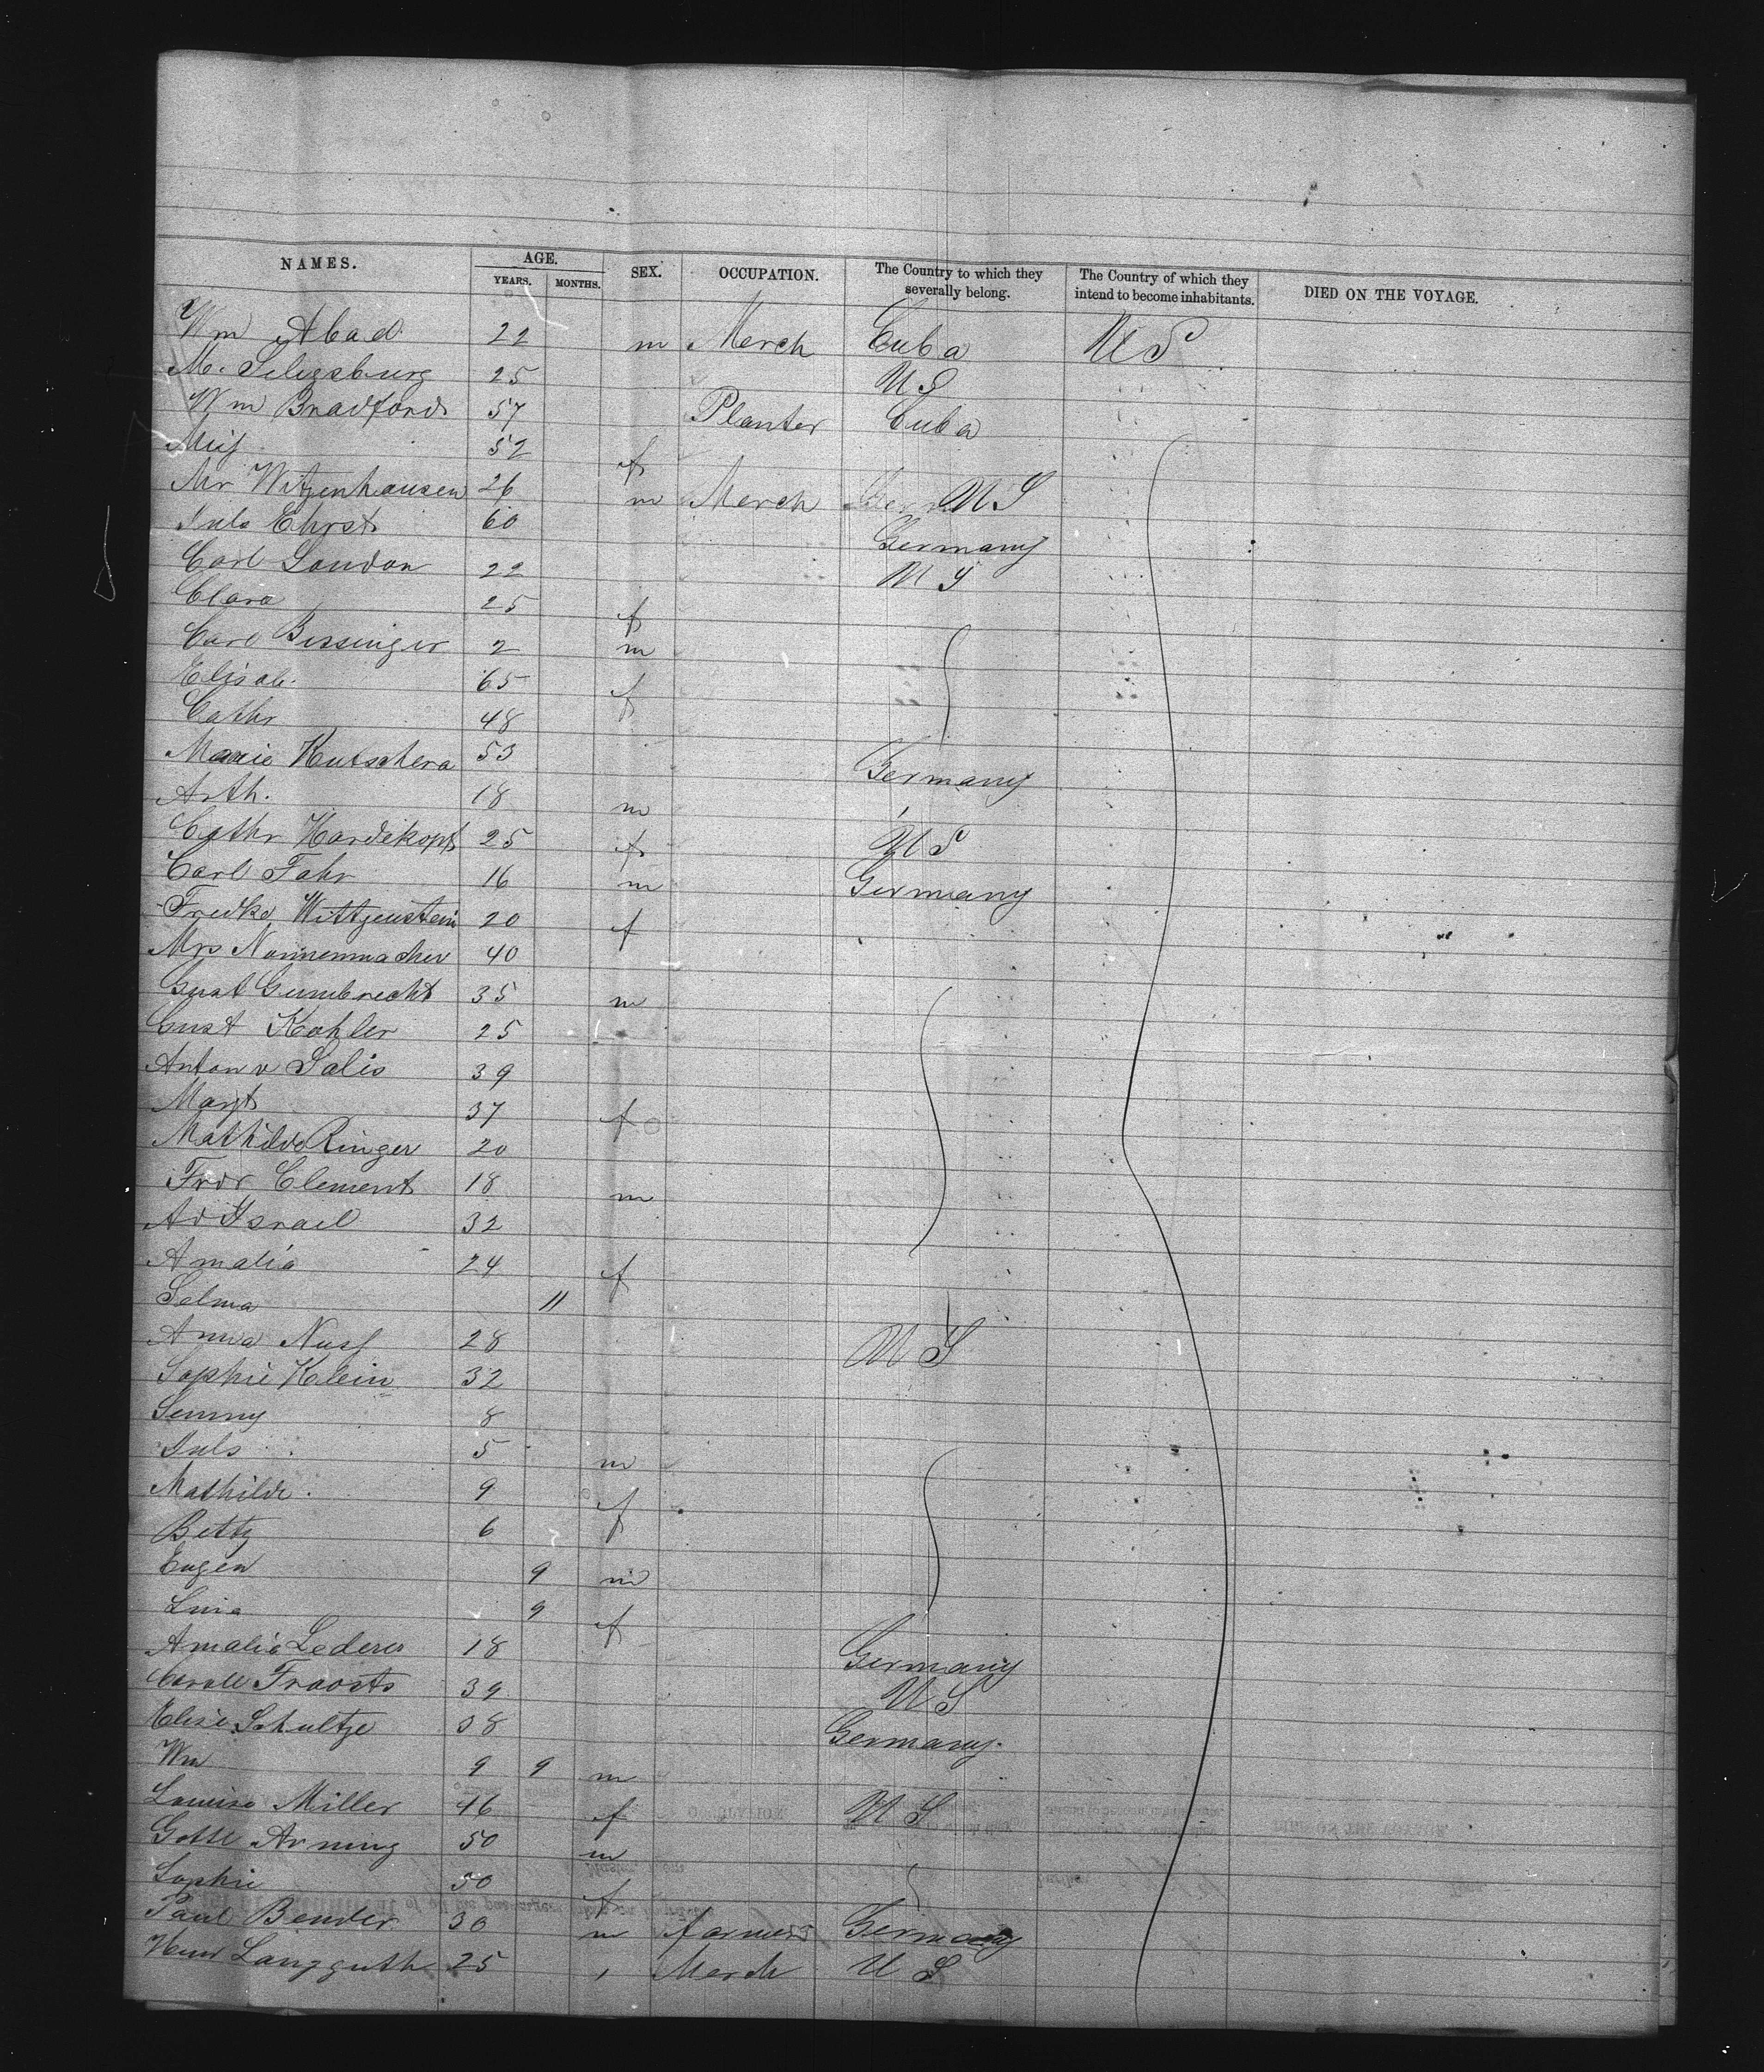 NAMES. AGE. YEARS. MONTHS. SEX. OCCUPATION. The Country to which they severally belong. The Country of which they intend to become inhabitants. DIED ON THE VOYAGE.
Wm Abad 22 m Merch Cuba U S
M. Seligsburg 25 U S
Wm Bradford 57 Planter Cuba
52 f
Mr Witzenhausen 26 m Merch U S
Juls Ehrst 60 Germany
Carl London 22 U S
Clara 25 f
Carl Bissinger 2 m
Elisab. 65 f
Cathr 48
Marie Kutschera 53 Germany
Arth. 18 m
Cathr Hardekopf 25 f U S
Carl Fahr 16 m Germany
Fredke Wittgenstein 20 f
Mrs Nonnenmacher 40
Gust Gumbrecht 35 m
Gust Kohler 25
Anton v Salis 39
Margt 37 f
Mathilde Ringer 20
Fror Clement 18 m
Ad Israel 32
Amalia 24 f
Selma 11
Anna Nuss 28 U S
Sophie Klein 32
Jenny 8
Juls 5 m
Mathilde. 9 f
Betty 6
Eugen 9 m
9 f
Amalia Lederer 18 Germany
39 U S
Elise Schultze 38 Germany.
Wm 9 9 m
Louisa Miller 46 f U S
Gottl Arning 50 m
Sophie 50 f
Paul Bender 30 m farmer Germany
Langguth 25 Merch U S